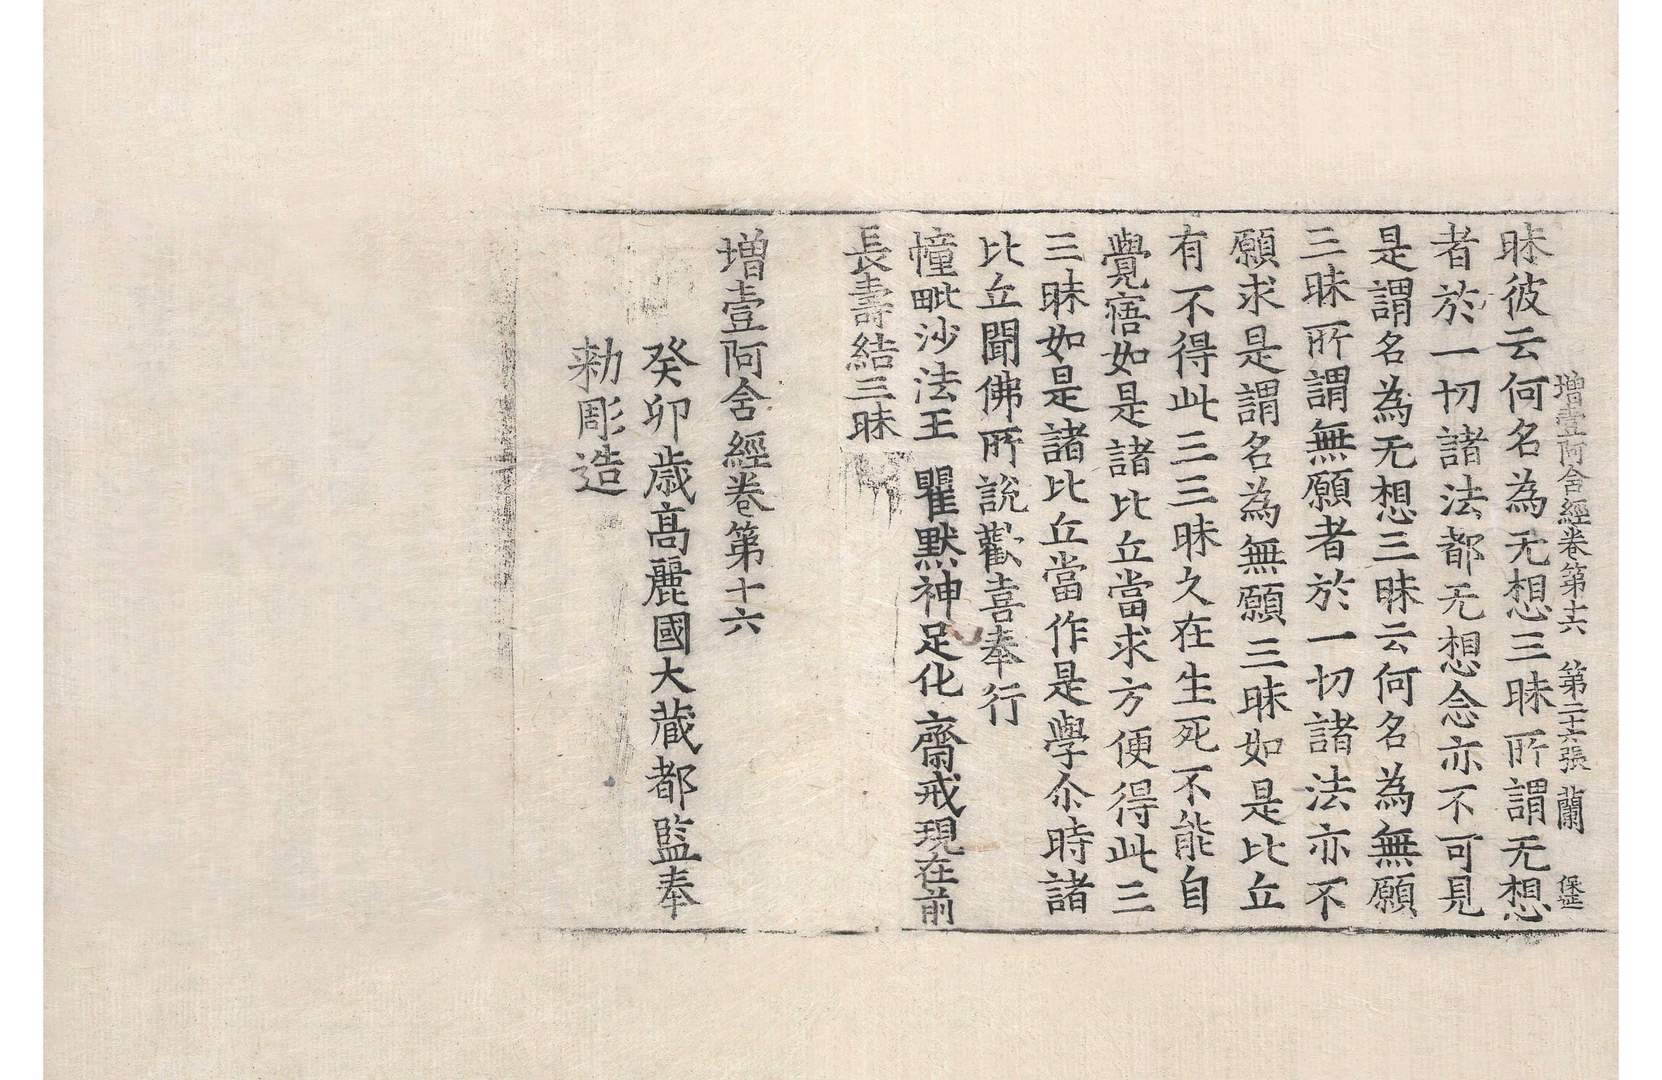 增壹阿含經卷第十六 第二十六張 蘭
昧彼云何名為无想三昧所謂无想
者於一切諸法都无想念亦不可見
是謂名為无想三昧云何名為無願
三昧所謂無願者於一切諸法亦不
願求是謂名為無願三昧如是比丘
有不得此三三昧久在生死不能自
覺寤如是諸比丘當求方便得此三
三昧如是諸比丘當作是學尒時諸
比丘聞佛所說歡喜奉行
幢毗沙法王 瞿默神足化 齋戒現在前
長壽結三昧
增壹阿含經卷第十六
癸卯歲高麗國大藏都監奉
勑彫造